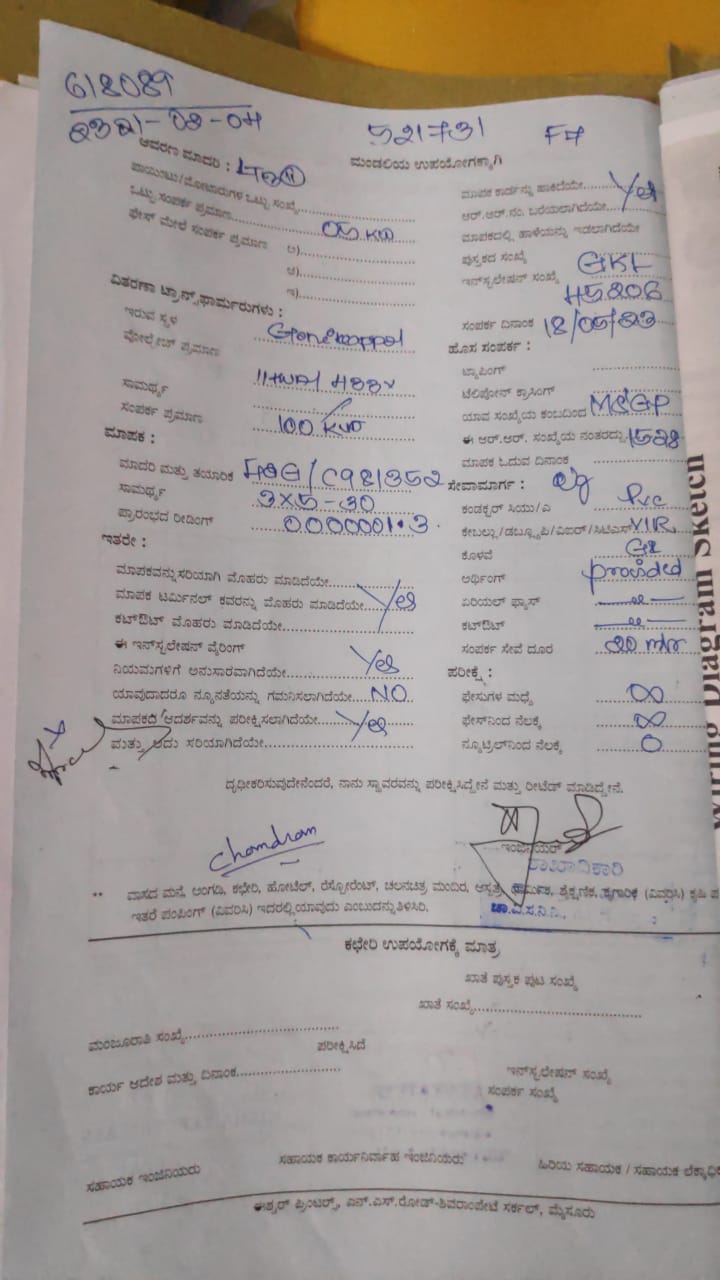 618089
521731 F7
ಆವರಣ ಮಾದರಿ :
ಮಂಡಲಿಯ ಉಪಯೋಗಕ್ಕಾಗಿ
ಪಾಯಿಂಟು/ಮೋಟಾರುಗಳ ಒಟ್ಟು ಸಂಖ್ಯೆ
ಒಟ್ಟು ಸಂಪರ್ಕ ಪ್ರಮಾಣ 05 KW
ಫೇಸ್ ಮೇಲೆ ಸಂಪರ್ಕ ಪ್ರಮಾಣ ಅ)
ಆ)
ಇ)
ವಿತರಣಾ ಟ್ರಾನ್ಸ್‌ಫಾರ್ಮರುಗಳು :
ಇರುವ ಸ್ಥಳ
ವೋಲ್ಟೇಜ್ ಪ್ರಮಾಣ
ಸಾಮರ್ಥ್ಯ
ಸಂಪರ್ಕ ಪ್ರಮಾಣ
ಮಾಪಕ :
ಮಾದರಿ ಮತ್ತು ತಯಾರಿಕೆ
ಸಾಮರ್ಥ್ಯ 3X5-30
ಪ್ರಾರಂಭದ ರೀಡಿಂಗ್ 0000001.3
ಇತರೇ :
ಮಾಪಕವನ್ನು ಸರಿಯಾಗಿ ಮೊಹರು ಮಾಡಿದೆಯೇ
ಮಾಪಕ ಟರ್ಮಿನಲ್ ಕವರನ್ನು ಮೊಹರು ಮಾಡಿದೆಯೇ Yes
ಕಟ್‌ಔಟ್ ಮೊಹರು ಮಾಡಿದೆಯೇ
ಈ ಇನ್‌ಸ್ಟಲೇಷನ್ ವೈರಿಂಗ್
ನಿಯಮಗಳಿಗೆ ಅನುಸಾರವಾಗಿದೆಯೇ Yes
ಯಾವುದಾದರೂ ನ್ಯೂನತೆಯನ್ನು ಗಮನಿಸಲಾಗಿದೆಯೇ NO
ಮಾಪಕದ ಆದರ್ಶವನ್ನು ಪರೀಕ್ಷಿಸಲಾಗಿದೆಯೇ Yes
ಮತ್ತು ಅದು ಸರಿಯಾಗಿದೆಯೇ
ಮಾಪಕ ಕಾರ್ಡನ್ನು ಹಾಕಿದೆಯೇ Yes
ಆರ್.ಆರ್.ನಂ. ಬರೆಯಲಾಗಿದೆಯೇ
ಮಾಪಕದಲ್ಲಿ ಹಾಳೆಯನ್ನು ಇಡಲಾಗಿದೆಯೇ
ಪುಸ್ತಕದ ಸಂಖ್ಯೆ
ಇನ್‌ಸ್ಟಲೇಷನ್ ಸಂಖ್ಯೆ GKL
45206
ಸಂಪರ್ಕ ದಿನಾಂಕ 18/05/23
ಹೊಸ ಸಂಪರ್ಕ :
ಟ್ಯಾಪಿಂಗ್
ಟೆಲಿಪೋನ್ ಕ್ರಾಸಿಂಗ್
ಯಾವ ಸಂಖ್ಯೆಯ ಕಂಬದಿಂದ MSGP
ಈ ಆರ್.ಆರ್. ಸಂಖ್ಯೆಯ ನಂತರದ್ದು 1528
ಮಾಪಕ ಓದುವ ದಿನಾಂಕ
ಸೇವಾಮಾರ್ಗ :
ಕಂಡಕ್ಟರ್ ಸಿಯು/ಎ
ಕೇಬಲ್ಲು/ಡಬ್ಲ್ಯೂಪಿ/ಎಐಆರ್/ಸಿಟಿಎಸ್ VIR
ಕೊಳವೆ GI
ಅರ್ಥಿಂಗ್ provided
ಏರಿಯಲ್ ಫ್ಯೂಸ್
ಕಟ್‌ಔಟ್
ಸಂಪರ್ಕ ಸೇವೆ ದೂರ 20 mtr
ಪರೀಕ್ಷೆ :
ಫೇಸುಗಳ ಮಧ್ಯೆ ∞
ಫೇಸ್‌ನಿಂದ ನೆಲಕ್ಕೆ ∞
ನ್ಯೂಟ್ರಿಲ್‌ನಿಂದ ನೆಲಕ್ಕೆ 0
ದೃಢೀಕರಿಸುವುದೇನೆಂದರೆ, ನಾನು ಸ್ಥಾವರವನ್ನು ಪರೀಕ್ಷಿಸಿದ್ದೇನೆ ಮತ್ತು ರೀಟೆಡ್ ಮಾಡಿದ್ದೇನೆ.
Chandram
ಇಂಜಿನಿಯರ್
ಶಾಖಾಧಿಕಾರಿ
ಚಾ.ವಿ.ಸ.ನಿ.ನಿ.,
** ವಾಸದ ಮನೆ, ಅಂಗಡಿ, ಕಛೇರಿ, ಹೋಟೆಲ್, ರೆಸ್ಟೋರೆಂಟ್, ಚಲನಚಿತ್ರ ಮಂದಿರ, ಆಸ್ಪತ್ರೆ, ಧಾರ್ಮಿಕ, ಶೈಕ್ಷಣಿಕ, (ವಿವರಿಸಿ) ಕೃಷಿ
ಇತರೆ ಪಂಪಿಂಗ್ (ವಿವರಿಸಿ) ಇದರಲ್ಲಿ ಯಾವುದು ಎಂಬುದನ್ನು ತಿಳಿಸಿರಿ.
ಕಛೇರಿ ಉಪಯೋಗಕ್ಕೆ ಮಾತ್ರ
ಖಾತೆ ಪುಸ್ತಕ ಪುಟ ಸಂಖ್ಯೆ
ಖಾತೆ ಸಂಖ್ಯೆ
ಮಂಜೂರಾತಿ ಸಂಖ್ಯೆ
ಪರೀಕ್ಷಿಸಿದೆ
ಕಾರ್ಯ ಆದೇಶ ಮತ್ತು ದಿನಾಂಕ
ಇನ್‌ಸ್ಟಲೇಷನ್ ಸಂಖ್ಯೆ
ಸಂಪರ್ಕ ಸಂಖ್ಯೆ
ಸಹಾಯಕ ಇಂಜಿನಿಯರು ಸಹಾಯಕ ಕಾರ್ಯನಿರ್ವಾಹ ಇಂಜಿನಿಯರು ಹಿರಿಯ ಸಹಾಯಕ / ಸಹಾಯಕ
ಈಶ್ವರ್ ಪ್ರಿಂಟರ್ಸ್, ಎನ್.ಎಸ್.ರೋಡ್-ಶಿವರಾಂಪೇಟೆ ಸರ್ಕಲ್, ಮೈಸೂರು
Wiring Diagram Sketch